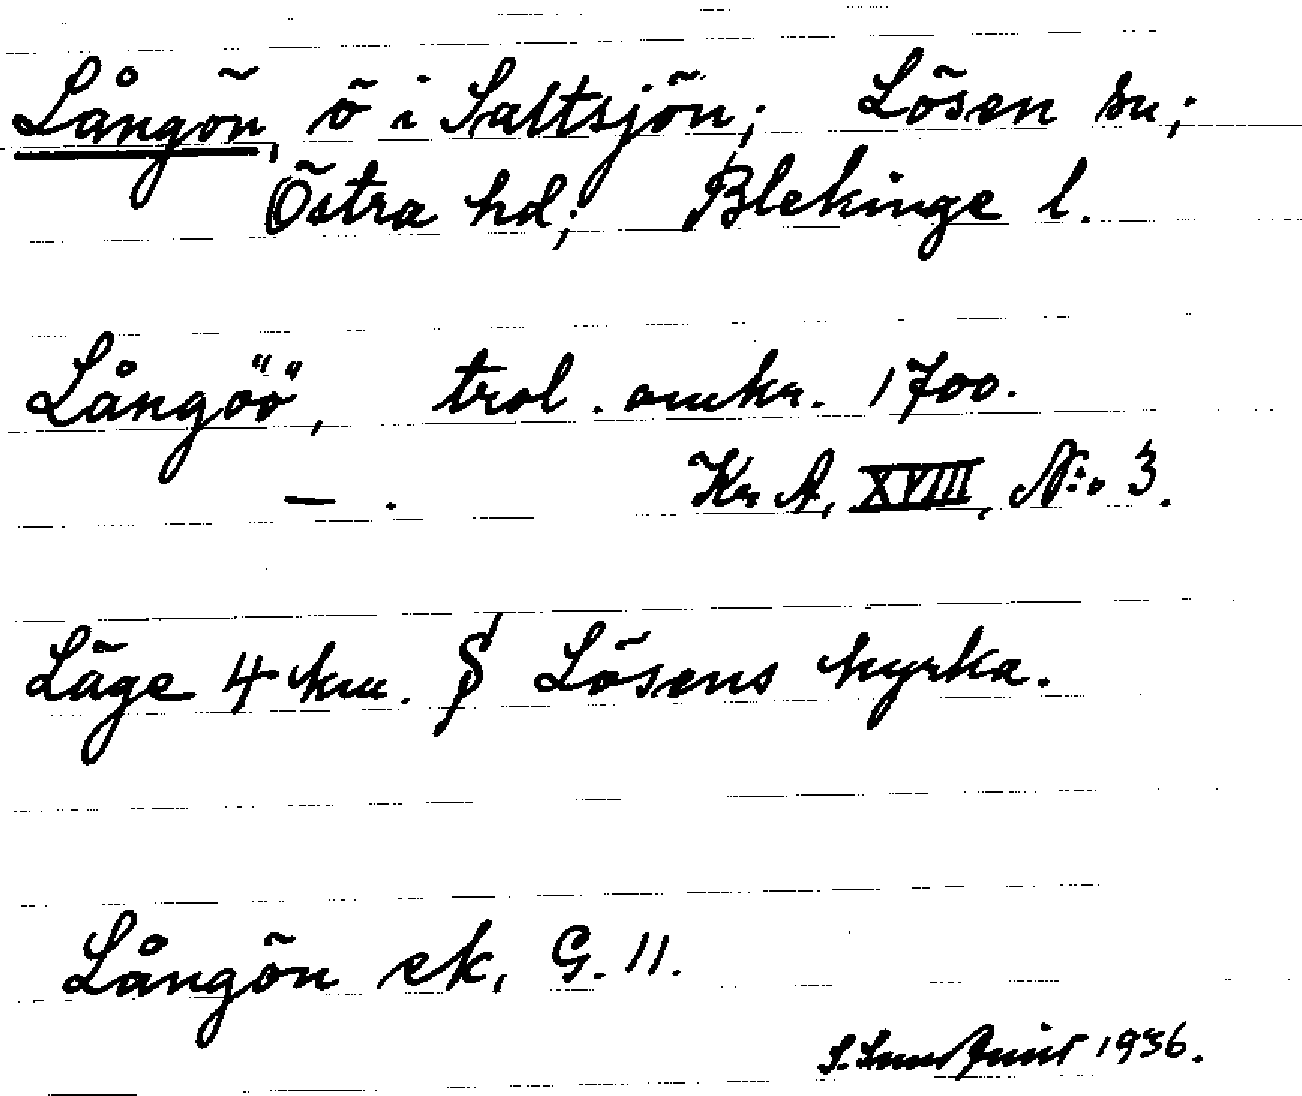 Långön, ö i Saltsjön; Lösen sn;
Östra hd; Blekinge l.
Långöö, trol. omkr. 1700.
— . Kr A, XVIII, N:o 3.
Läge 4 km. S Lösens kyrka.
Långön ek, G. 11.
1936.